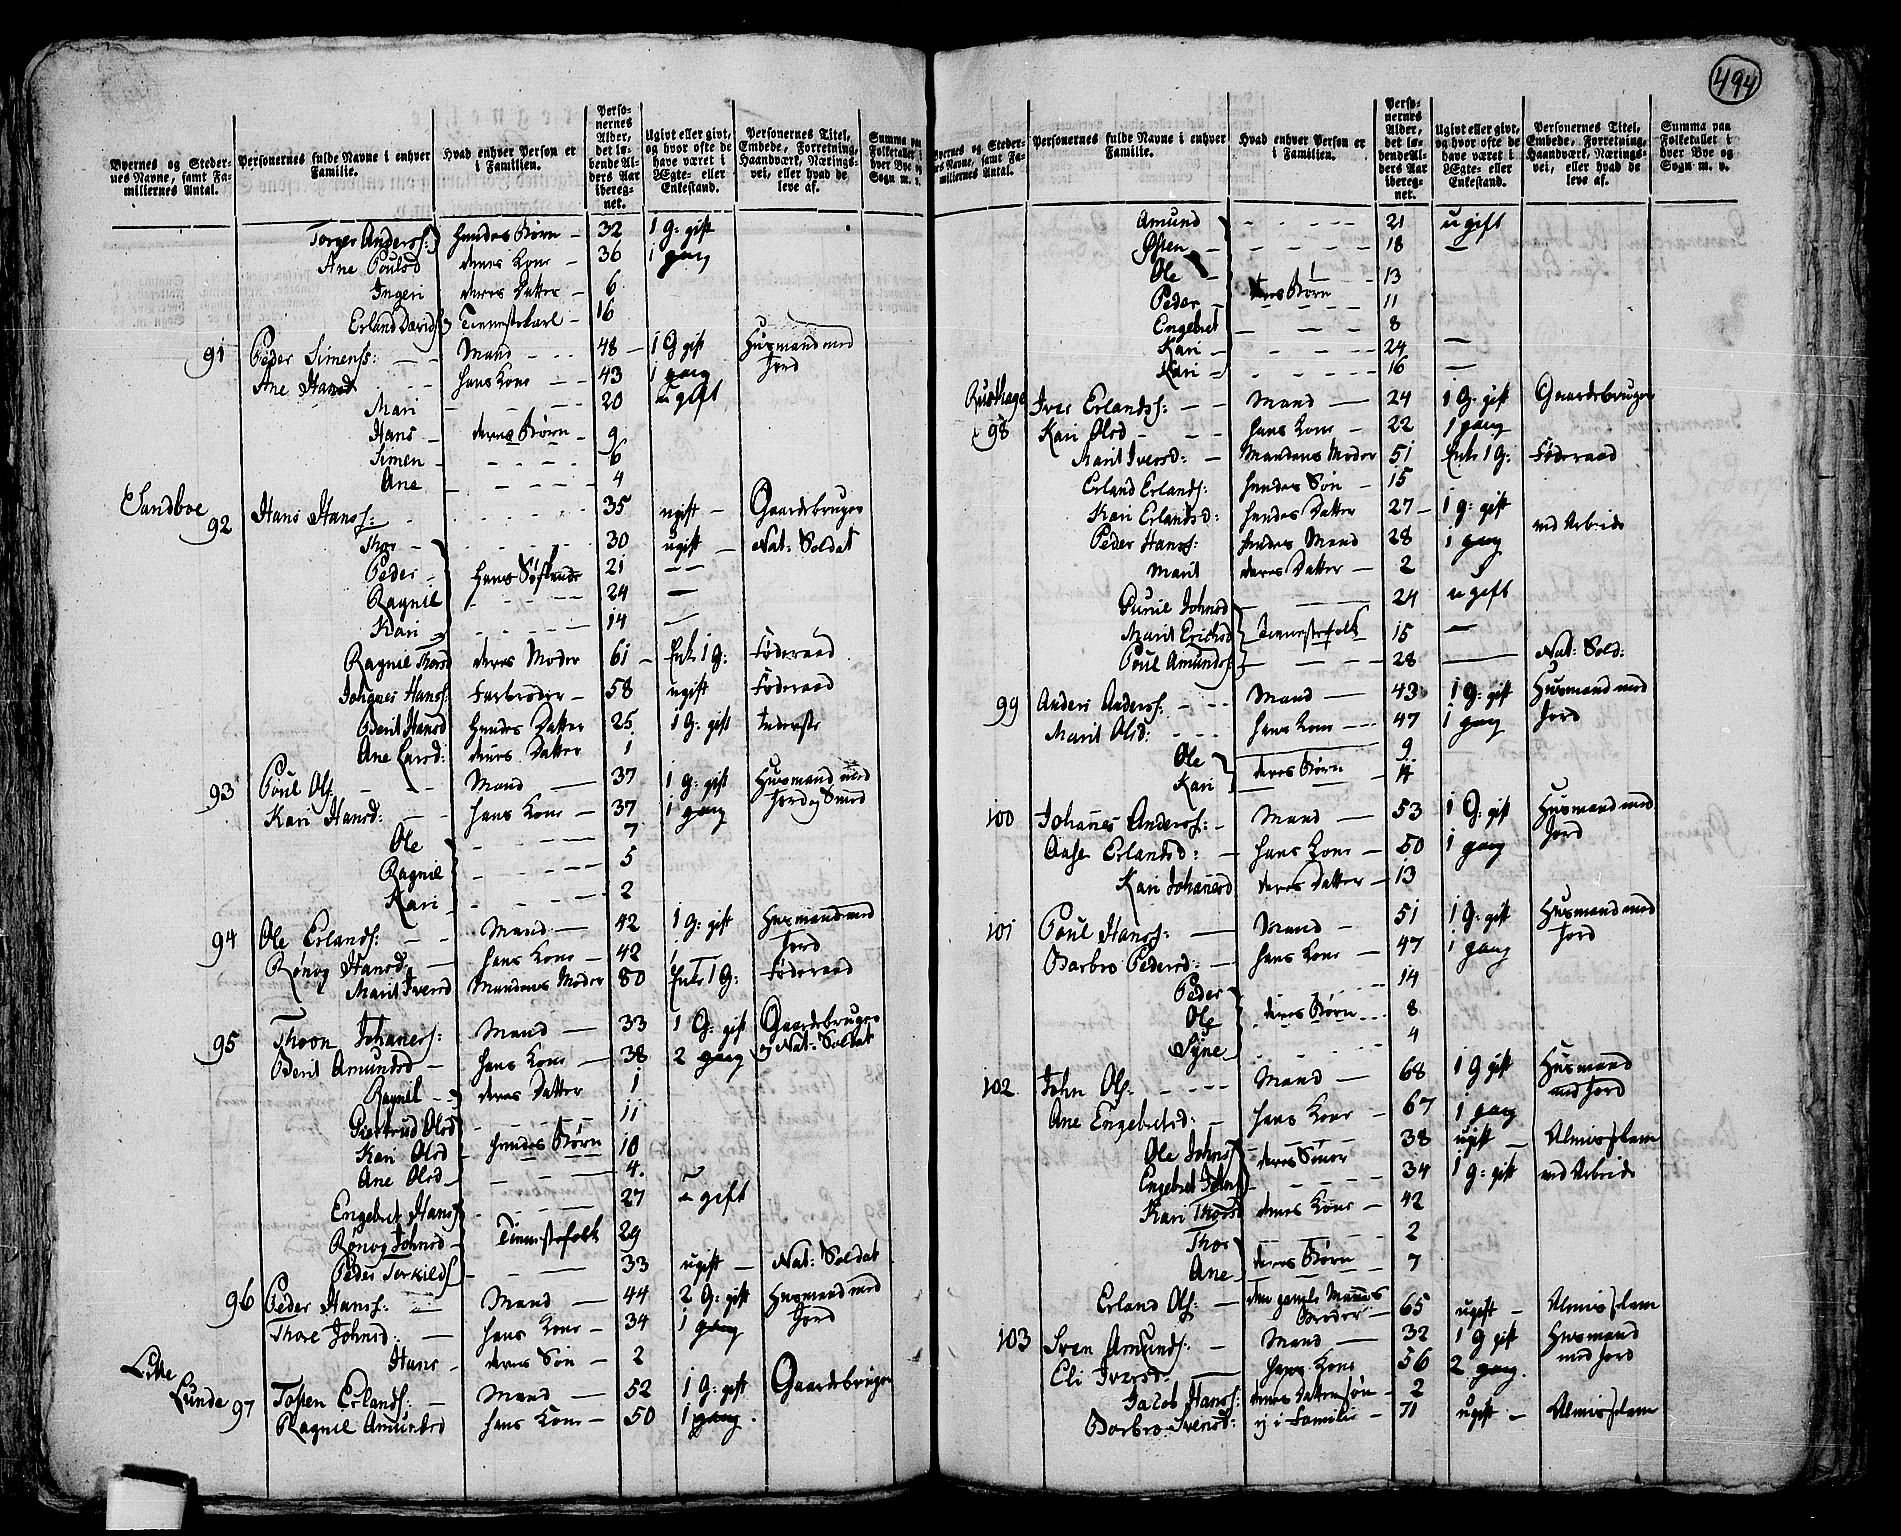 494
Byernes og Stedernes Navne, samt Familiernes Antal.
Personernes fulde Navne i enhver Familie.
Hvad enhver Person er i Familien.
Personernes Alder, det løbende Alders Aar iberegnet.
Ugivt eller givt, og hvor ofte de have været i Ægte- eller Enkestand.
Personernes Titel, Embede, Forretning, Haandværk, Næringsvei, eller hvad de leve af.
Summa paa Folketallet i hver Bye og Sogn m. v.
Torger Anderss: hendes Børn 32 1 G: gift
Ane Poulsd deres Kone 36 1 gang
Ingeri deres Datter 6
Erland Davids Tienestekarl 16
91 Peder Simenss: Mand 48 1 G gift Huusmand med Jord
Ane Hansd hans Kone 43 1 gang
Mari 20 ugift
Hans deres Børn 9
Simen 6
Ane 4
Sandboe
92 Hans Hanss: 35 ugift Gaardsbruger
Thor 30 ugift Nat: Soldat
Peder hans Søskende 21
Ragnil 24
Kari 14
Ragnil Thorsd deres Moder 61 Enke 1 G: Føderaad
Johannes Hanss: Farbroder 58 ugift Føderaad
Berit Hansd hendes Datter 25 1 G: gift Inderste
Ane Larsd: deres Datter 1
93 Poul Ols: Mand 37 1 G: gift Huusmand med Jord og Smed
Kari Hansd: hans Kone 37 1 gang
Ole 7
Ragnil 5
Kari 2
94 Ole Erlands: Mand 42 1 G: gift Huusmand med Jord
Rønog Hansd hans Kone 42 1
Marit Iversd Mandens Moder 80 Enke 1 G: Føderaad
95 Thoon Johaness: Mand 33 1 G: gift Gaardsbruger og Nat: Soldat
Berit Amundsd hans Kone 38 2 gang
Ragnil deres Datter 1
Giertrud Olsd 11
Kari Olsd hendes Børn 10
Ane Olsd 4
Engebret Hanss 27 ugift
Rønog Johnsd Tienestefolk 29
Peder Torkilds 33 ugift Nat: Soldat
96 Peder Hanss: Mand 44 2 G: gift Huusmand med Jord
Thore Johnsd: hans Kone 34 1 gang
Hans deres Søn 2
Lille Lunde
97 Tosten Erlands: Mand 52 1 G: gift Gaardsbruger
Ragnil Amundsd hans Kone 50 1 gang
Byernes og Stedernes Navne, samt Familiernes Antal.
Personernes fulde Navne i enhver Familie.
Hvad enhver Person er i Familien.
Personernes Alder, det løbende Alders Aar iberegnet.
Ugivt eller givt, og hvor ofte de have været i Ægte- eller Enkestand.
Personernes Titel, Embede, Forretning, Haandværk, Næringsvei, eller hvad de leve af.
Summa paa Folketallet i hver Bye og Sogn m. v.
Amund 21 ugift
Østen 18
Ole 13
Peder deres Børn 11
Engebret 8
Kari 24
Kari 16
Rusthage
98 Iver Erlandss: Mand 24 1 G: gift Gaardsbruger
Kari Olsd hans Kone 22 1 gang
Marit Iversd: Mandens Moder 51 Enke 1 G: Føderaad
Erland Erlands: hendes Søn 15
Kari Erlandsd: hendes Datter 27 1 G: gift
Peder Hanss: hendes Mand 28 1 gang ved Arbeide
Marit deres Datter 2
Gunil Johnsd 24 ugift
Marit Erichsd Tienestefolk 15
Poul Amunds 28 Nat: Sold:
99 Anders Anderss: Mand 43 1 G: gift Huusmand med Jord
Marit Olsd: hans Kone 47 1 gang
Ole 9
Kari deres Børn 4
100 Johannes Anderss: Mand 53 1 G: gift Huusmand med Jord
Aase Erlandsd: hans Kone 50 1 gang
Kari Johanesd deres Datter 13
101 Poul Hanss: Mand 51 1 G: gift Huusmand med Jord
Barbro Pedersd: hans Kone 47 1 gang
Peder 14
Ole deres Børn 8
Syne 4
102 John Ols: Mand 68 1 G gift Huusmand med Jord
Ane Engebretsd: hans Kone 67 1 gang
Ole Johns deres Sønner 38 ugift Almisselem
Engebret Johns 34 1 G: gift ved Arbeide
Kari Thorsd deres Kone 42
Thor 2
Ane deres Børn 7
Erland Ols: den gamle Mands Broder 65 ugift Almisselem
103 Sven Amunds: Mand 32 1 G gift Huusmand med Jord
Eli Iversd: hans Kone 56 2 gang
Jacob Hanss: deres Dattersøn 2
Barbro Svensd: ej i Familie 71 ugift Almisselem